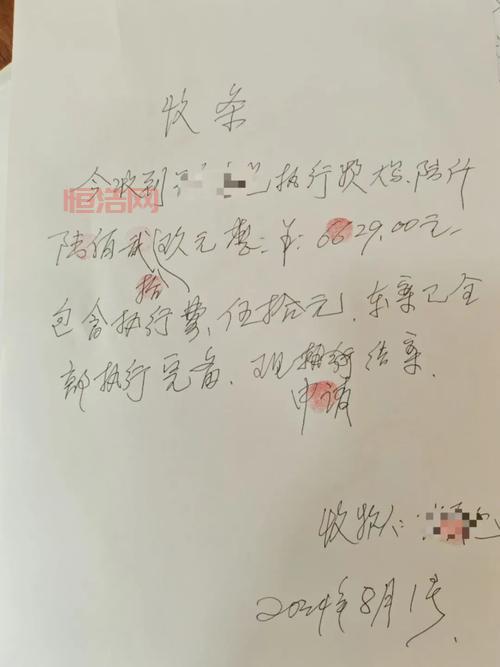 收条
今收到 执行款 大写:陆仟
陆佰贰拾玖元整:羊:6629.00元.
包含执行费伍拾元.本案已全
部执行完备.现申请结案.
收款人:
2024年8月1号
恒洁网